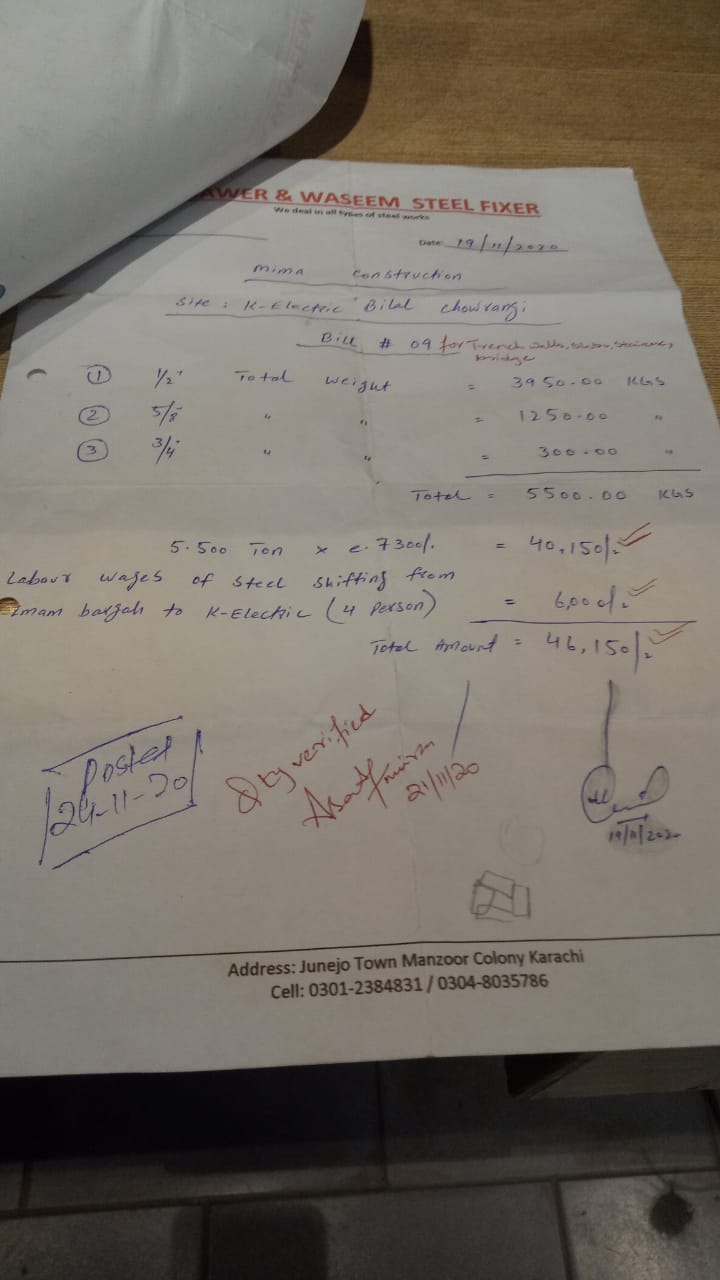 AWER & WASEEM STEEL FIXER
We deal in all types of steel works
Date: 19/11/2020
Mima Construction
Site: K-Electric Bilal Chowrangi
Bill # 09 for Trench walls,
bridge
1 1/2" Total Weight = 3950.00 KGS
2 5/8" " " = 1250.00 "
3 3/4" " " = 300.00 "
Total = 5500.00 KGS
5.500 Ton x @. 7300/. = 40,150/=
Labour wages of steel shifting from
Imam bargah to K-Electric (4 person) = 6,000/=
Total Amount = 46,150/=
Posted
24-11-20
Qty verified
21/11/20
19/11/2020
Address: Junejo Town Manzoor Colony Karachi
Cell: 0301-2384831 / 0304-8035786